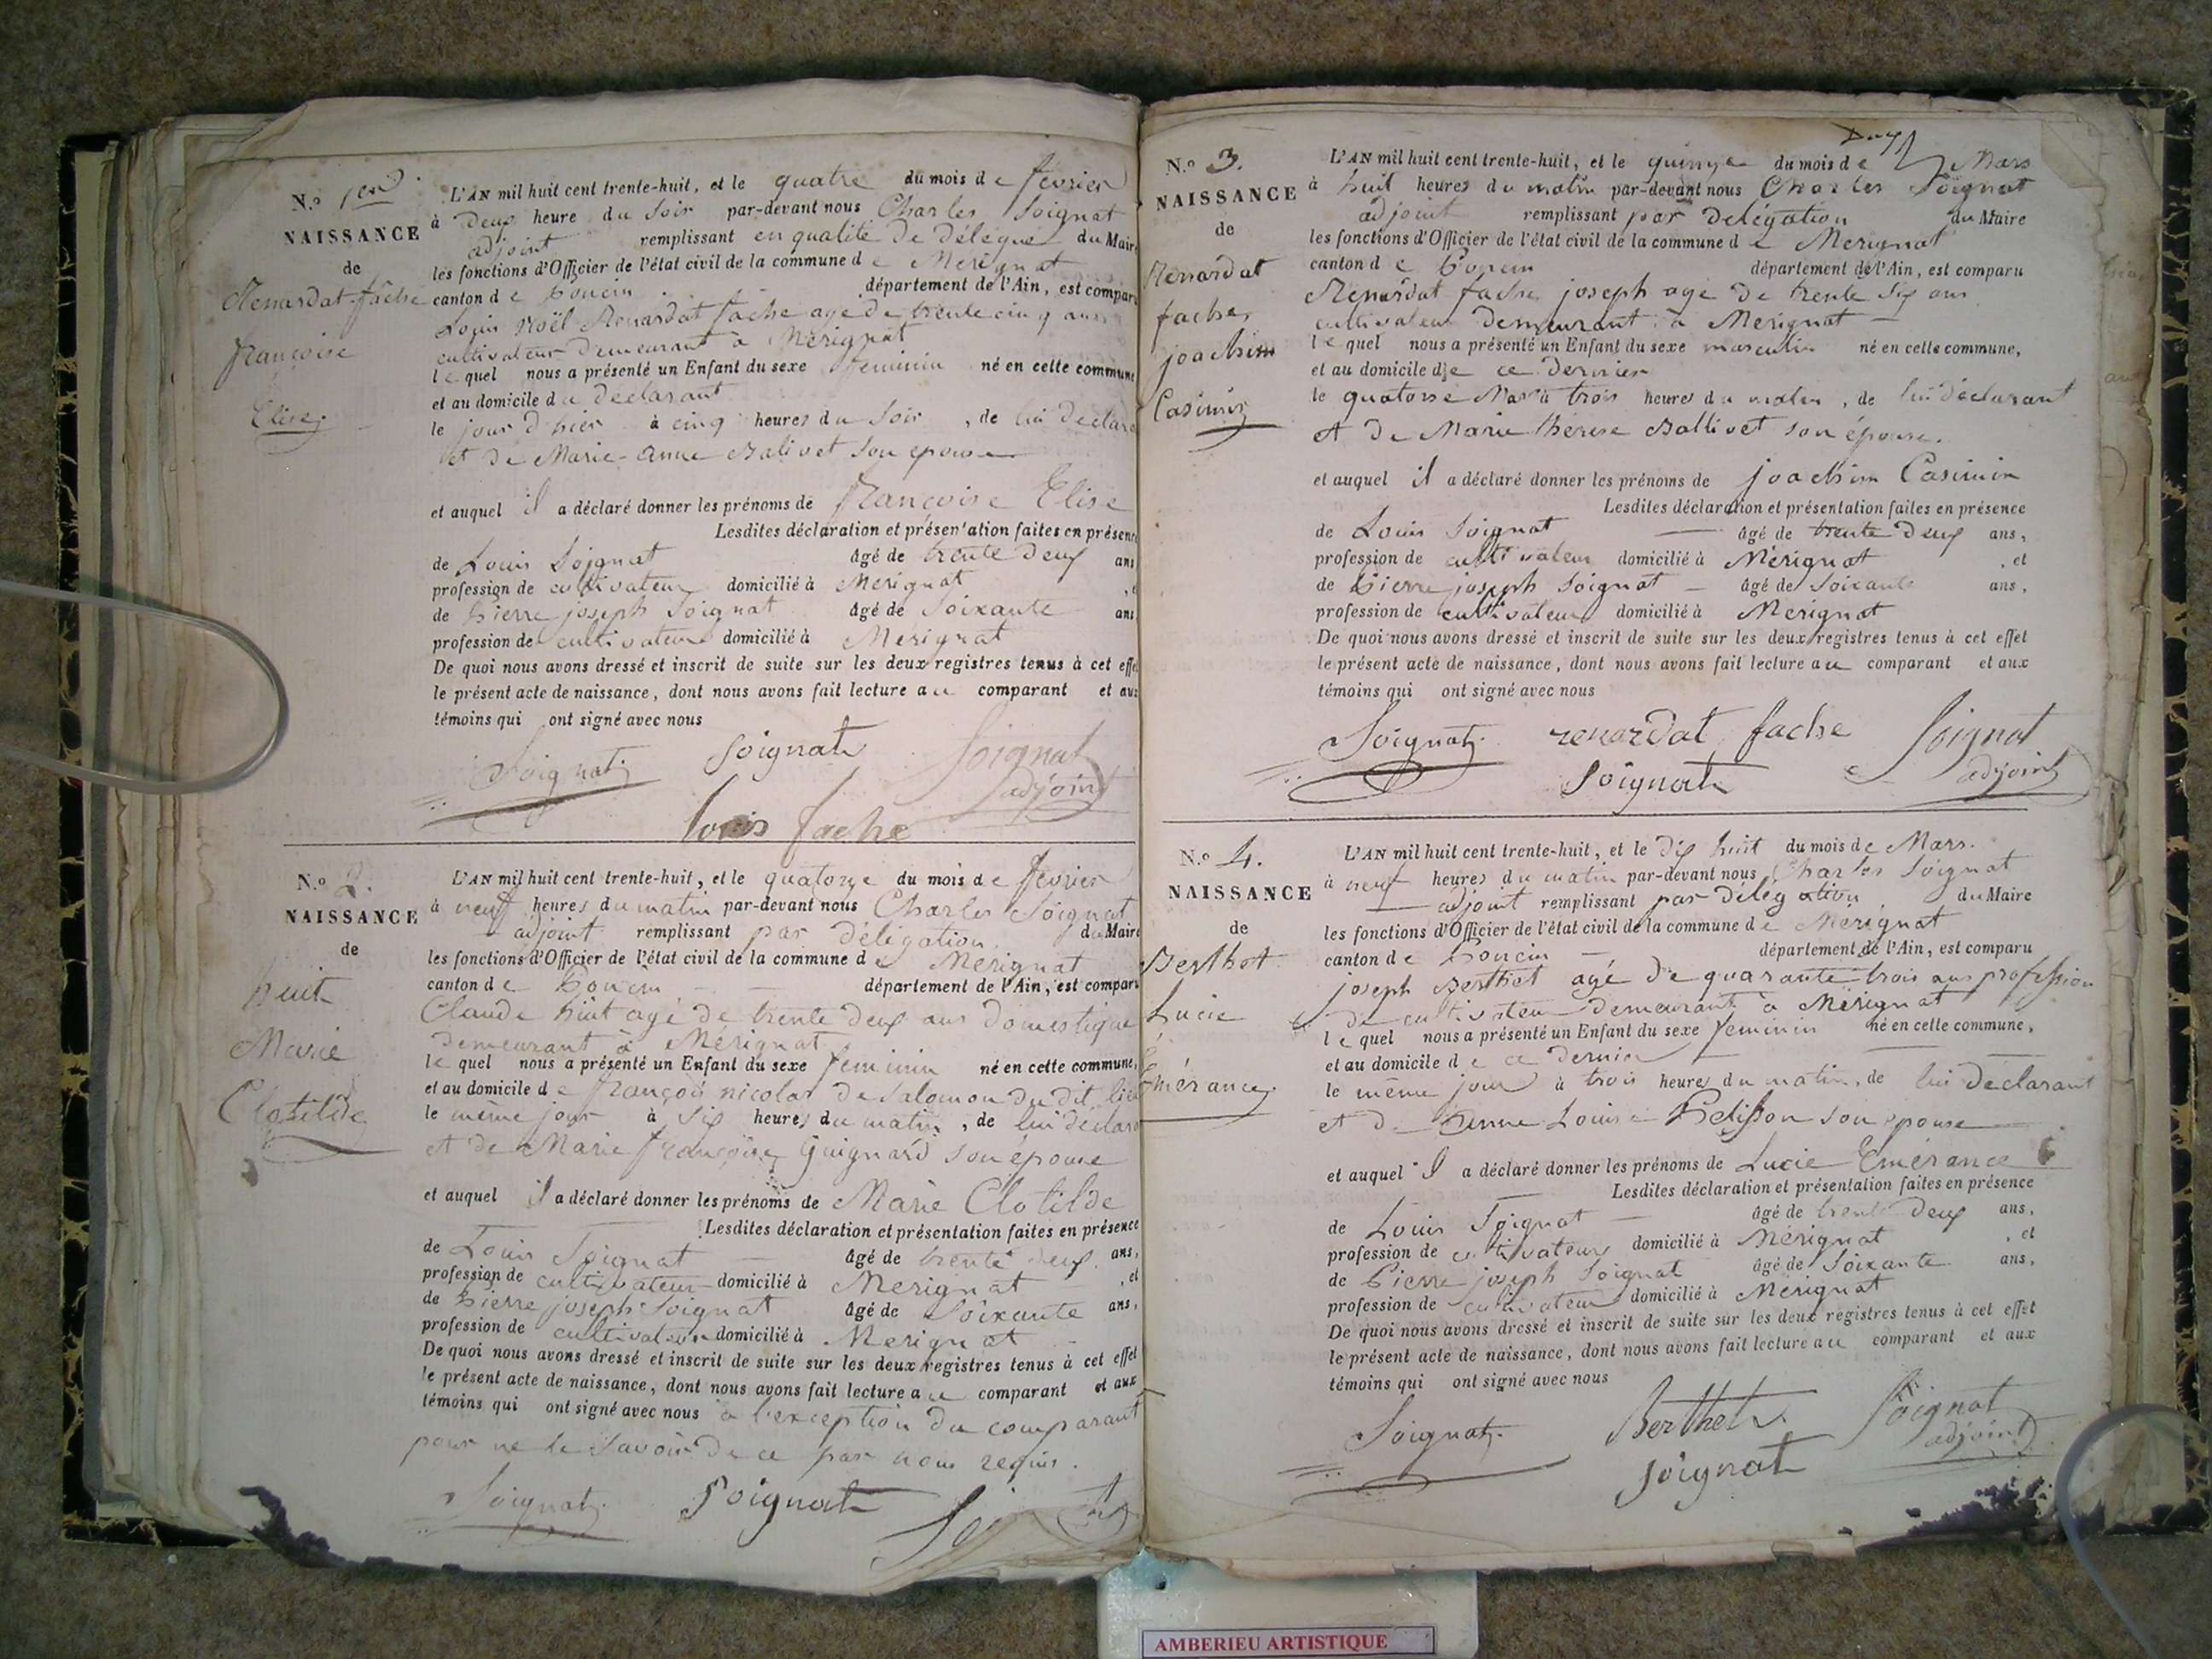 N.o 1er
NAISSANCE
de
Renardat-fâche
françoise
Elise
L'AN mil huit cent trente-huit, et le quatre du mois de février
à Deux heure du Soir par-devant nous Charles Soignat
adjoint remplissant en qualité De Délégué du Maire
les fonctions d'Officier de l'état civil de la commune de Mérignat
canton de Poncin département de l'Ain, est comparu
Louis Noël Renardat fache agé de trente cinq ans
cultivateur Demeurant à Mérignat
lequel nous a présenté un Enfant du sexe feminin né en cette commune
et au domicile du déclarant
le jour d'hier à cinq heures du Soir, de lui déclara
et de Marie-Anne Balivet Son epouse
et auquel il a déclaré donner les prénoms de françoise Elise
Lesdites déclaration et présentation faites en présence
de Louis Soignat âgé de trente Deux ans
profession de cultivateur domicilié à Mérignat
de Pierre joseph Soignat âgé de Soixante ans
profession de cultivateur domicilié à Mérignat
De quoi nous avons dressé et inscrit de suite sur les deux registres tenus à cet effet
le présent acte de naissance, dont nous avons fait lecture au comparant et aux
témoins qui ont signé avec nous
Soignat Soignat Soignat
adjoint
louis fache
N.o 2.
NAISSANCE
de
huit
Marie
Clotilde
L'AN mil huit cent trente-huit, et le quatorze du mois de février
à neuf heures du matin par-devant nous Charles Soignat
adjoint remplissant par délégation du Maire
les fonctions d'Officier de l'état civil de la commune de Mérignat
canton de Poncin département de l'Ain, est comparu
Claude huit agé de trente deux ans domestique
Demeurant à Mérignat
lequel nous a présenté un Enfant du sexe feminin né en cette commune,
et au domicile de françois nicolas De Salomon Du dit lieu
le même jour à Six heures du matin, de lui déclara
et de Marie françoise Guignard Son épouse
et auquel il a déclaré donner les prénoms de Marie Clotilde
Lesdites déclaration et présentation faites en présence
de Louis Soignat âgé de trente deux ans,
profession de cultivateur domicilié à Mérignat, et
de Pierre joseph Soignat âgé de Soixante ans,
profession de cultivateur domicilié à Mérignat
De quoi nous avons dressé et inscrit de suite sur les deux registres tenus à cet effet
le présent acte de naissance, dont nous avons fait lecture au comparant et aux
témoins qui ont signé avec nous à l'exception du comparant
pour ne le Savoir De ce par nous requis.
Soignat Soignat
N.o 3.
NAISSANCE
de
Renardat
fache,
joachim
Casimir
L'AN mil huit cent trente-huit, et le quinze du mois de Mars
à huit heures du matin par-devant nous Charles Soignat
adjoint remplissant par Delégation du Maire
les fonctions d'Officier de l'état civil de la commune de Mérignat
canton de Poncin département de l'Ain, est comparu
Renardat fache joseph age De trente Six ans
cultivateur Demeurant à Mérignat
lequel nous a présenté un Enfant du sexe masculin né en cette commune,
et au domicile de ce Dernier
le quatorse Mars à trois heures du matin, de lui déclarant
et De Marie thérese Ballivet son épouse.
et auquel il a déclaré donner les prénoms de joachim Casimir
Lesdites déclaration et présentation faites en présence
de Louis Soignat âgé de trente Deux ans,
profession de cultivateur domicilié à Mérignat, et
de Pierre joseph Soignat âgé de Soixante ans,
profession de cultivateur domicilié à Mérignat
De quoi nous avons dressé et inscrit de suite sur les deux registres tenus à cet effet
le présent acte de naissance, dont nous avons fait lecture au comparant et aux
témoins qui ont signé avec nous
Soignat renardat fache Soignat
Soignat adjoint
N.o 4.
NAISSANCE
de
Berthet
Lucie
Emérance
L'AN mil huit cent trente-huit, et le Dix huit du mois de Mars.
à neuf heures du matin par-devant nous Charles Soignat
adjoint remplissant par Délégation du Maire
les fonctions d'Officier de l'état civil de la commune de Mérignat
canton de Poncin département de l'Ain, est comparu
joseph Berthet agé De quarante trois ans profession
De cultivateur demeurant à Mérignat
lequel nous a présenté un Enfant du sexe feminin né en cette commune,
et au domicile de ce Dernier
le même jour à trois heures du matin, de lui Déclarant
et De Anne Louise Pelisson son épouse
et auquel il a déclaré donner les prénoms de Lucie Emérance
Lesdites déclaration et présentation faites en présence
de Louis Soignat âgé de trente Deux ans,
profession de cultivateur domicilié à Mérignat, et
de Pierre joseph Soignat âgé de Soixante ans,
profession de cultivateur domicilié à Mérignat
De quoi nous avons dressé et inscrit de suite sur les deux registres tenus à cet effet
le présent acte de naissance, dont nous avons fait lecture au comparant et aux
témoins qui ont signé avec nous
Soignat Berthet Soignat
Soignat adjoint
AMBERIEU ARTISTIQUE